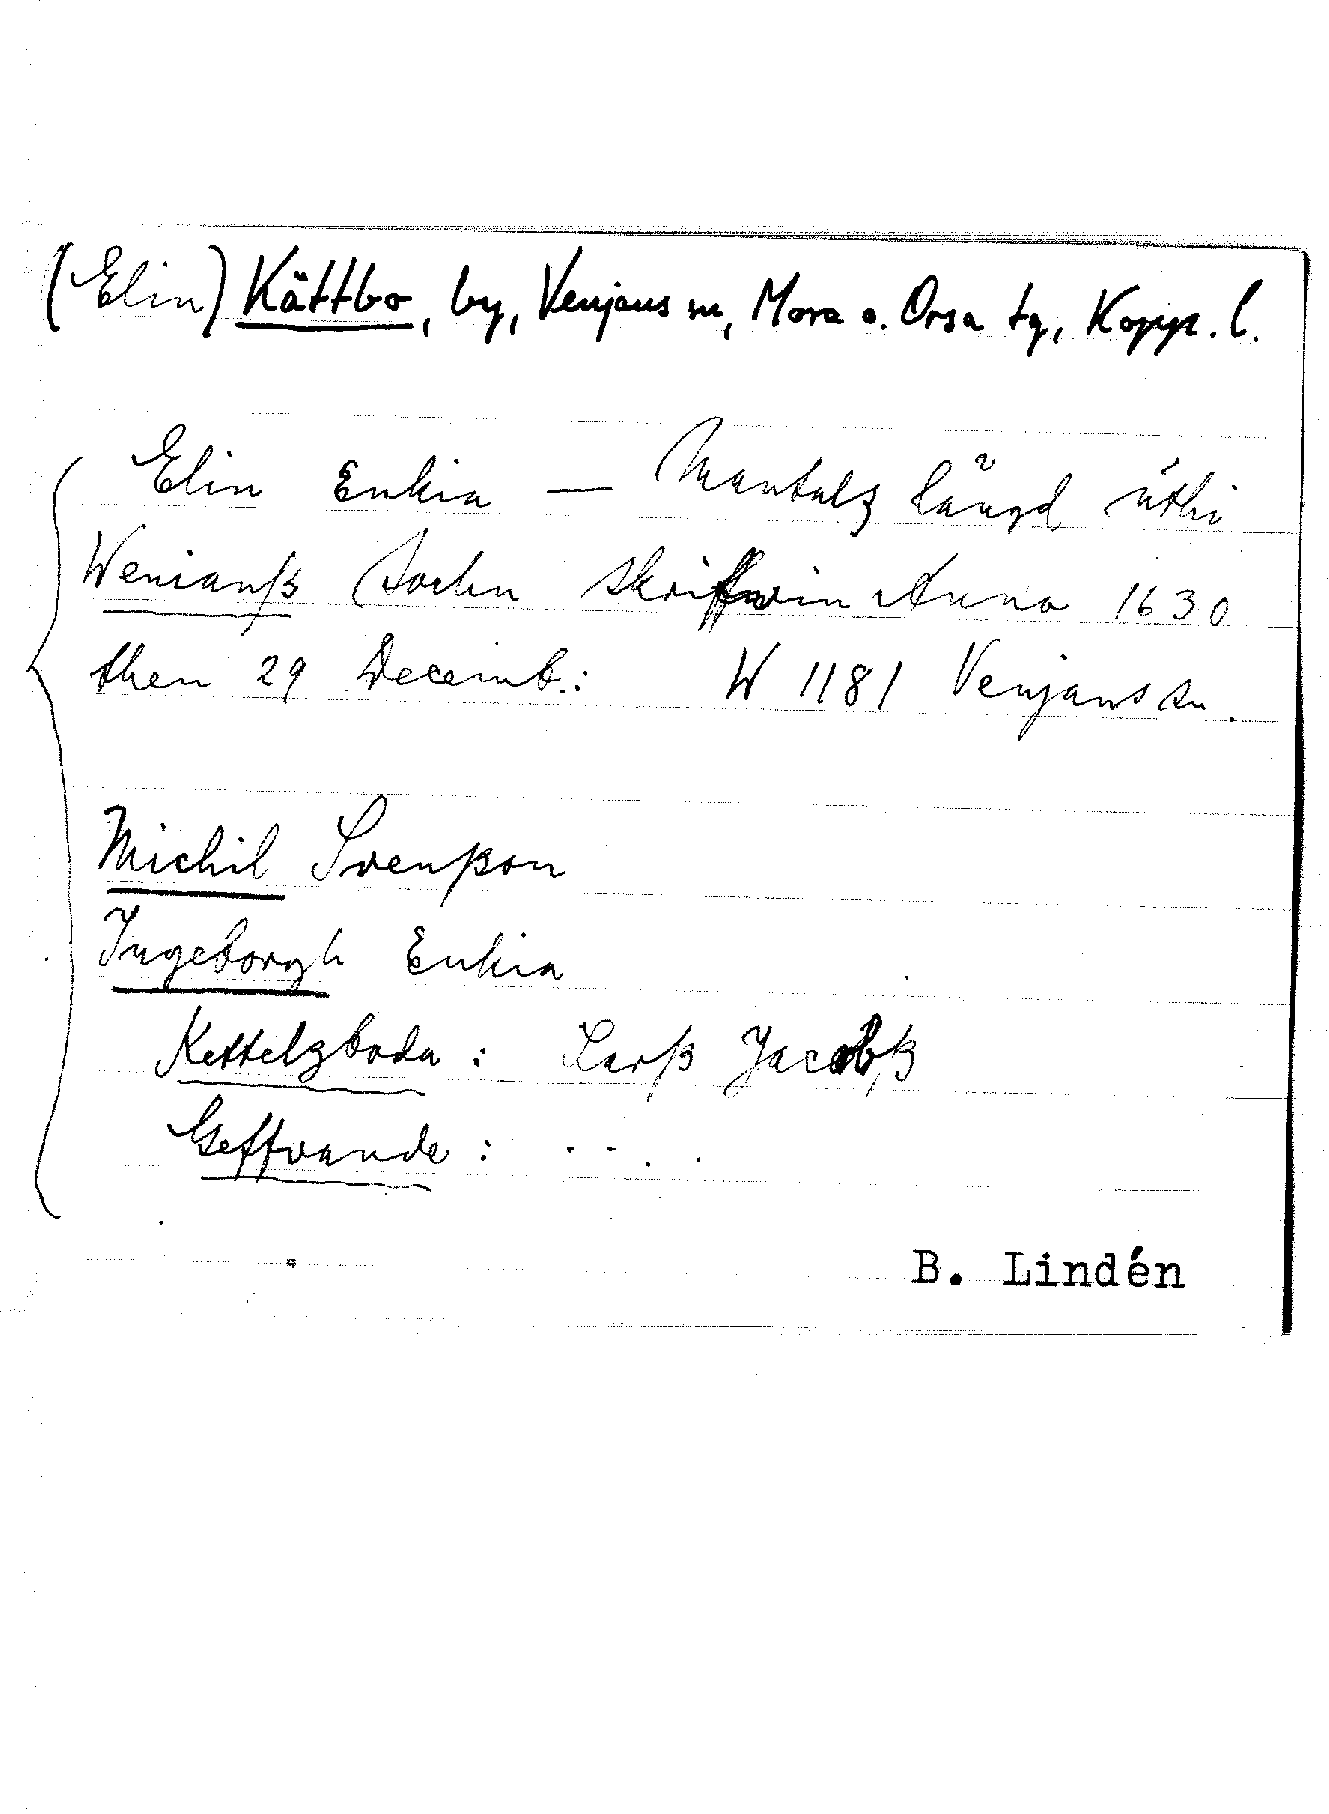 (Elin) Kättbo, by, Venjans sn, Mora o. Orsa tg, Kopp. l.
Elin Enkia — Mantalz längd uthi
Wenianß Sochn skriffwin Anno 1630
then 29 Decemb.: W 1181 Venjans sn.
Michil Svenßon
Ingeborgh Enkia
Kettelzboda: Larß Jacobß
Geffvande: ....
B. Lindén